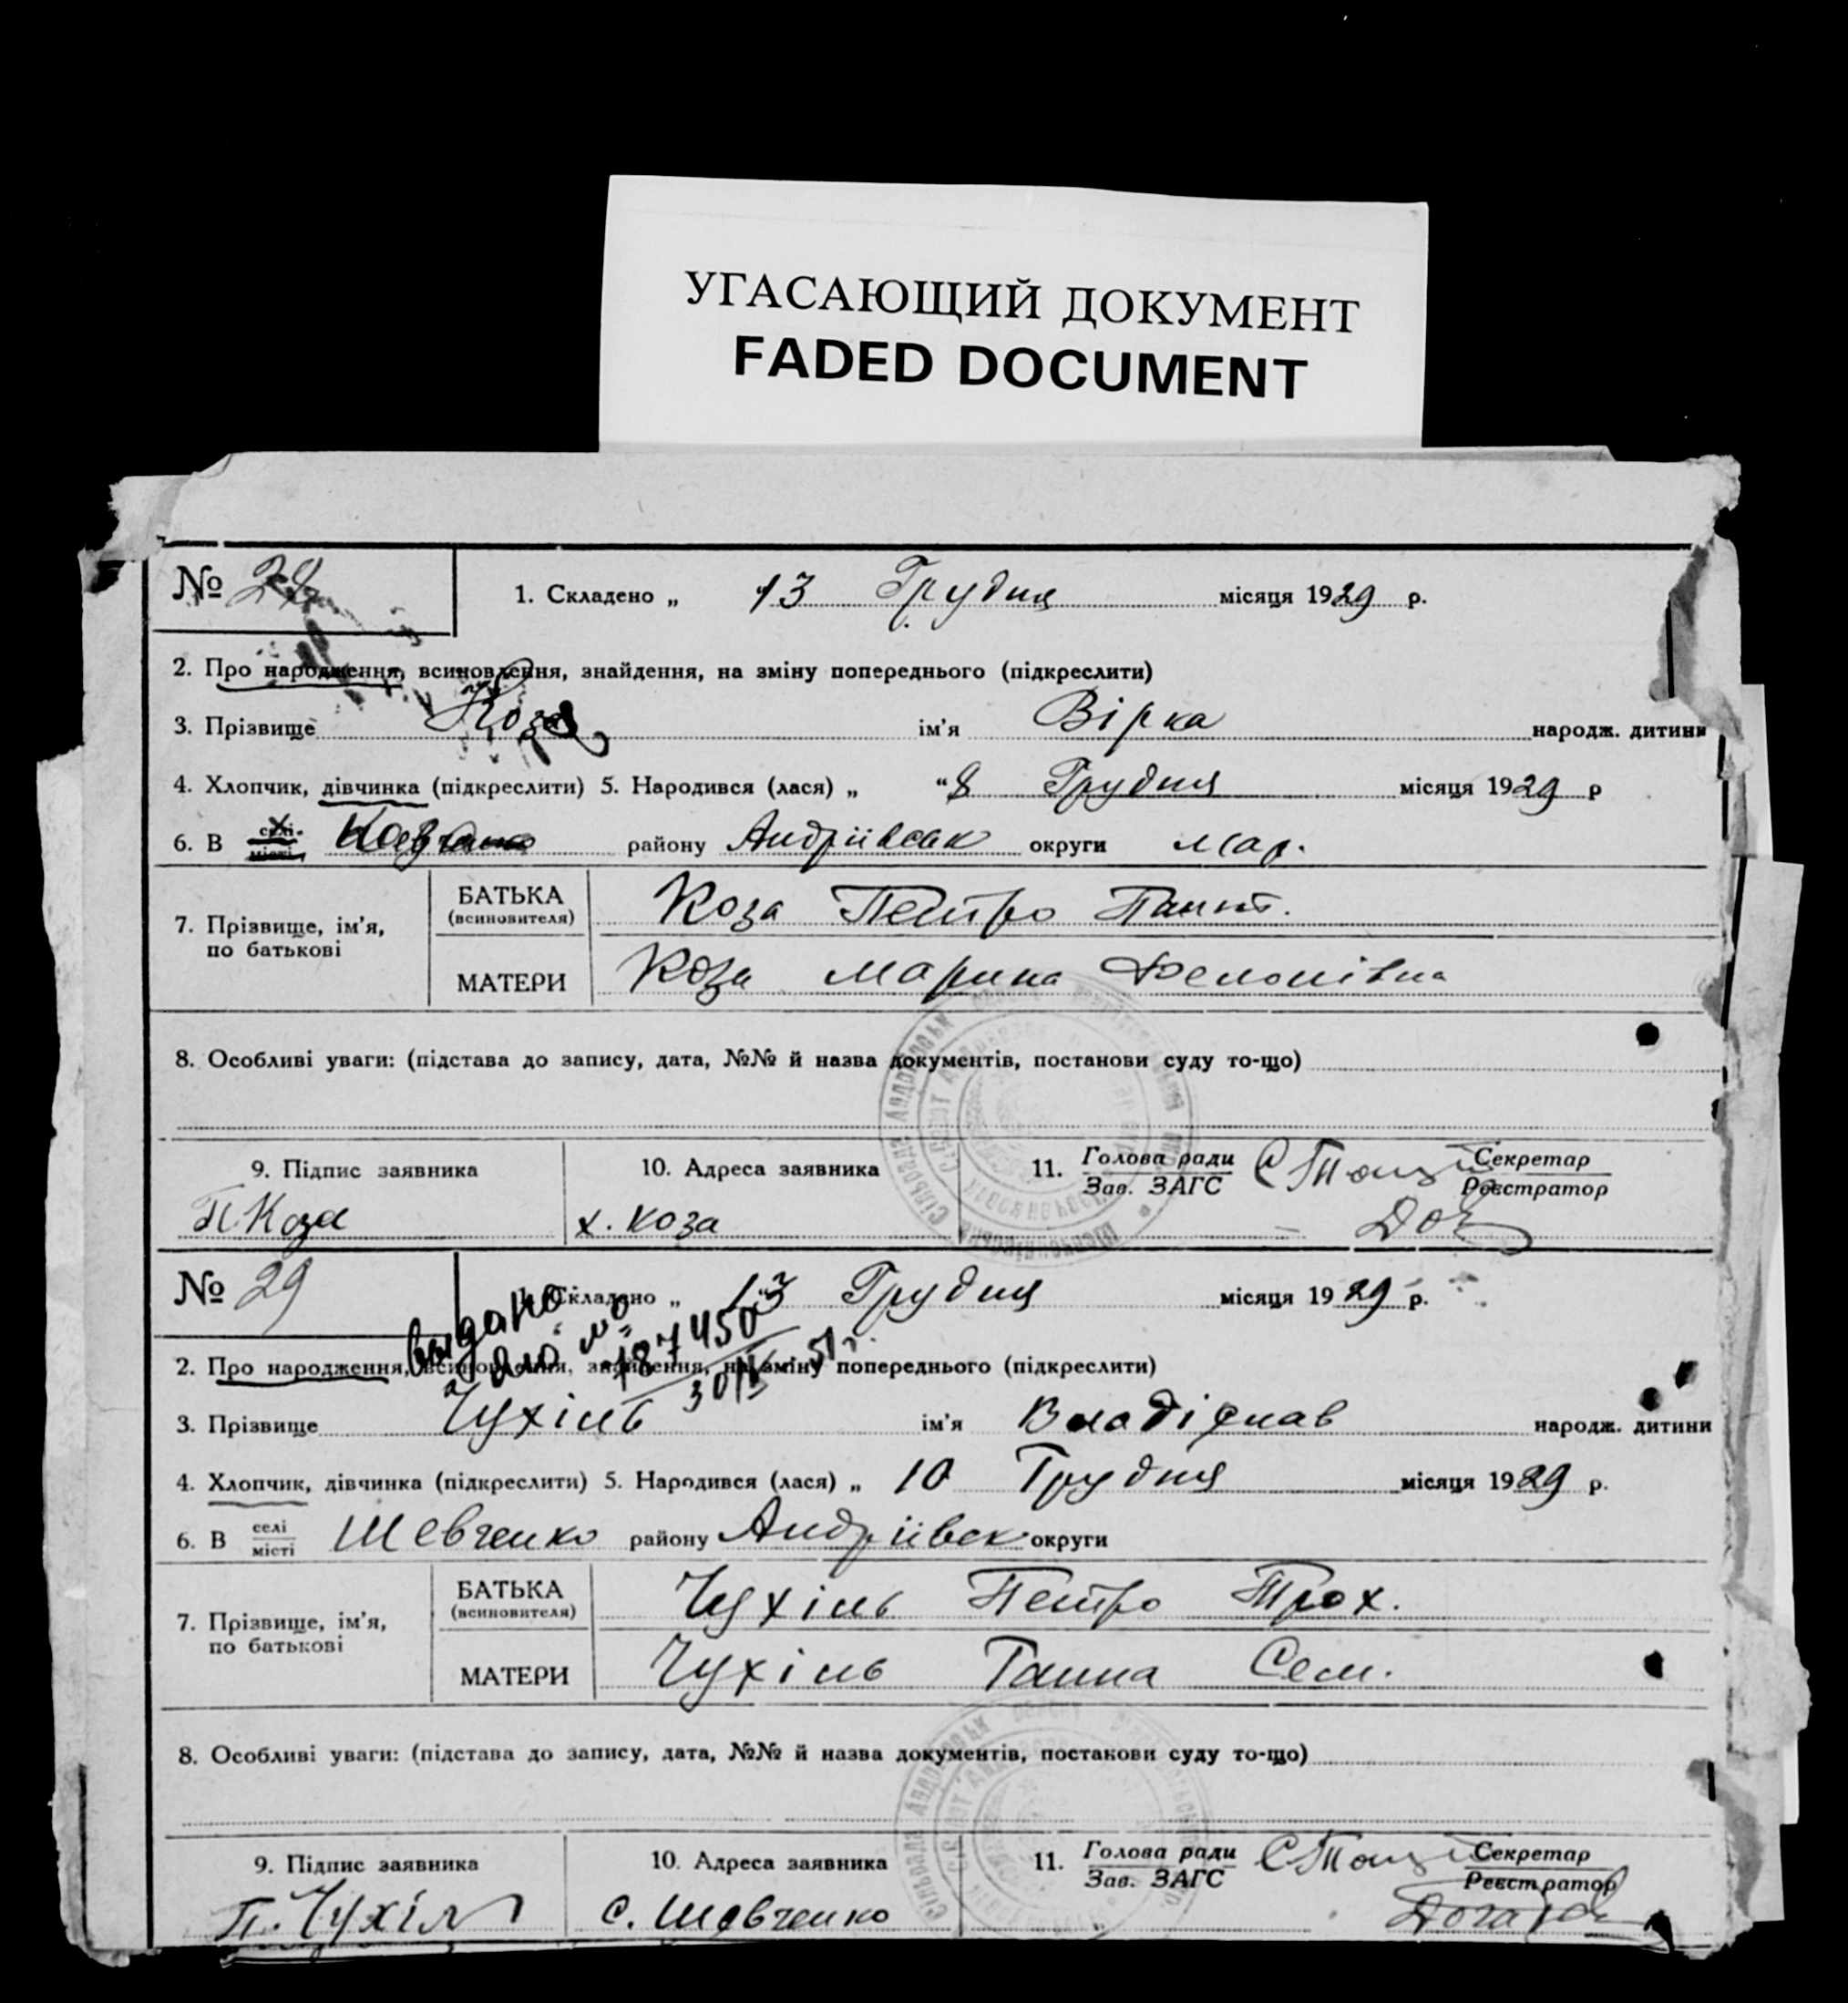 УГАСАЮЩИЙ ДОКУМЕНТ
FADED DOCUMENT
№ 28
1. Складено „ 13 Грудня місяця 1929 р.
2. Про народження, всиновлення, знайдення, на зміну попереднього (підкреслити)
3. Прізвище Коза ім'я Вірка народж. дитини
4. Хлопчик, дівчинка (підкреслити) 5. Народився (лася) „ “ 8 Грудня місяця 1929 р
6. В х. селі місті району Андріівськ округи мар.
7. Прізвище, ім'я, по батькові
БАТЬКА (всиновителя) Коза Петро Пант.
МАТЕРИ Коза Марина
8. Особливі уваги: (підстава до запису, дата, №№ й назва документів, постанови суду то-що)
9. Підпис заявника 10. Адреса заявника 11. Голова ради Зав. ЗАГС Секретар Реєстратор
П Коза х. Коза
№ 29
1. Складено „ 13 Грудня місяця 1929 р.
выдано
187450
2. Про народження, всиновлення, знайдення, на зміну попереднього (підкреслити)
3. Прізвище Чухіль ім'я Владіслав народж. дитини
4. Хлопчик, дівчинка (підкреслити) 5. Народився (лася) „ 10 Грудня місяця 1929 р.
6. В селі місті Шевченко району Андріівск округи
7. Прізвище, ім'я, по батькові
БАТЬКА (всиновителя) Чухіль Петро Трох.
МАТЕРИ Чухіль Ганна Сем.
8. Особливі уваги: (підстава до запису, дата, №№ й назва документів, постанови суду то-що)
9. Підпис заявника 10. Адреса заявника 11. Голова ради Зав. ЗАГС Секретар Реєстратор
П. Чухіль с. Шевченко